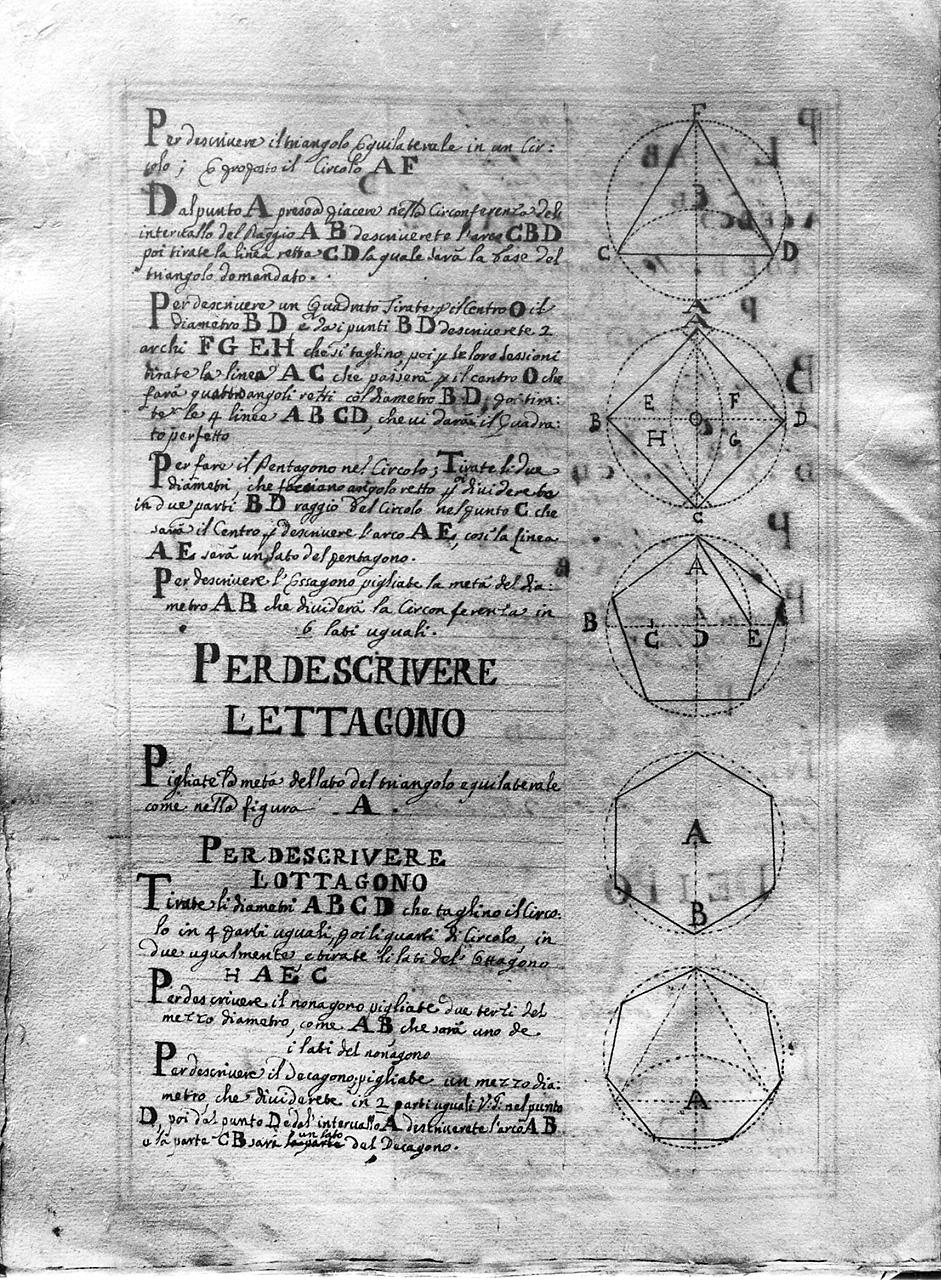 Per descriuere il triangolo Equilaterale in un Cir:
colo; e proposto il Circolo A F
Dal punto A preso a piacere nella Circonferenza del
interuallo del Raggio A B descriuerete l'arco CBD
poi tirate la linea retta CD la quale sarà la base del
triangolo domandato.
Per descriuere un Quadrato Tirate p il Centro O il
diametro B D e da i punti B D descriuerete 2
archi FG EH che si taglino, poi p le loro sessioni
tirate la linea A C che passerà p il centro O che
farà quattro angoli retti col diametro B D, poi tira:
te le 4 linee A B C D, che vi darà il Quadra:
to perfetto
Per fare il Pentagono nel Circolo; Tirate li due
diametri, che facciano angolo retto p dividerete
in due parti B D raggio del Circolo nel punto C che
sarà il Centro p descriuere l'arco A E, così la linea
A E sarà un lato del pentagono.
Per descriuere l'Essagono pigliate la metà del dia:
metro A B che diuiderà la Circonferenza in
6 lati uguali.
PER DESCRIVERE
L'ETTAGONO
Pigliate la metà del lato del triangolo equilaterale
come nella figura A.
PER DESCRIVERE
L'OTTAGONO
Tirate li diametri A B C D che taglino il Circo:
lo in 4 parti uguali, poi li quarti di Circolo, in
due ugualmente e tirate li lati del Ottagono
H A E C
Per descriuere il nonagono pigliate due terzi del
mezzo diametro, come A B che sarà uno de
i lati del nonagono
Per descriuere il Decagono, pigliate un mezzo dia:
metro, che diuiderete in 2 parti uguali nel punto
D, poi dal punto D e dal interuallo A descriuerete l'arco A B
e la parte C B sarà un lato del Decagono.
F
B
C D
A
E F
B O D
H G
C
A
B C D E
A
B
A